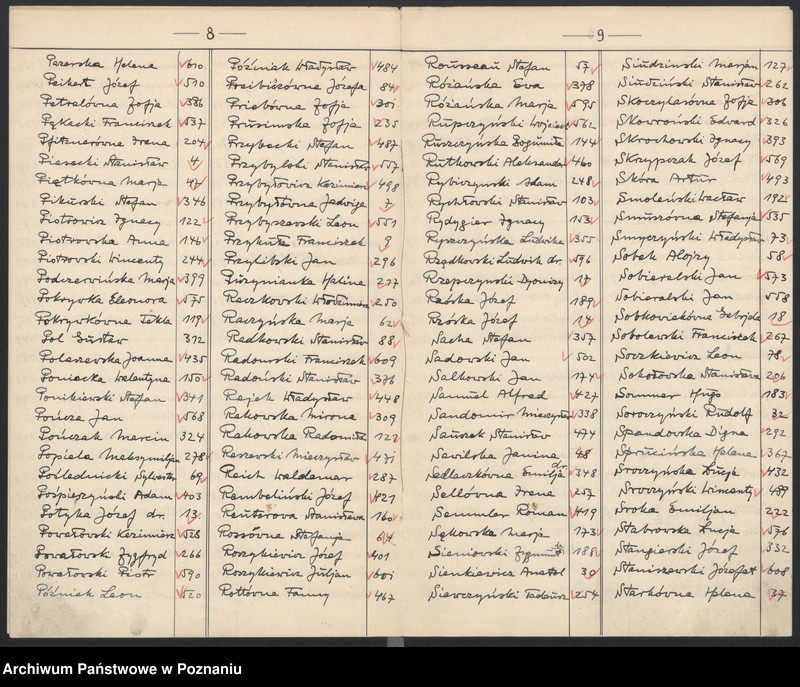 8
Pazerska Helena 610
Peikert Józef 510
Petrelówna Zofja 386
Pękacki Franciszek 537
Pfitznerówna Irena 204
Piasecki Stanisław 4
Piątkówna Marja 47
Pikurski Stefan 346
Piotrowicz Ignacy 122
Piotrowska Anna 146
Piotrowski Wincenty 244
Podczerwińska Marja 399
Pokrywka Eleonora 575
Pokrywkówna Tekla 119
Pol Gustaw 312
Polaszewska Joanna 435
Poniecka Walentyna 150
Ponikiewski Stefan 341
Pończa Jan 568
Pończak Marcin 324
Popiela Maksymiljan 278
Poślednicki Sylwester 69
Pospieszyński Adam 403
Potyka Józef dr. 13
Powałowski Kazimierz 528
Powałowski Zygfryd 266
Powałowski Piotr 590
Późniak Leon 520
Późniak Władysław 484
Preibiszówna Józefa 84
Priebówna Zofja 301
Prusimska Zofja 235
Przybecki Stefan 487
Przybylski Stanisław 557
Przybyłowicz Kazimierz 498
Przybyłówna Jadwiga 7
Przybyszewski Leon 551
Przykuta Franciszek 9
Przylibski Jan 296
Puszynianka Halina 277
Raczkowski Włodzimierz 250
Raczyńska Marja 62
Radkowski Stanisław 88
Radomski Franciszek 609
Radoński Stanisław 376
Rajek Władysław 448
Rakowska Mirona 309
Rakowska Radomiła 122
Raszewski Mieczysław 471
Reich Waldemar 287
Rembeliński Józef 421
Reuterowa Stanisława 160
Rossówna Stefanja 64
Roszykiewicz Józef 401
Roszykiewicz Juljan 601
Rottówna Fanny 467
9
Rousseau Stefan 57
Różańska Ewa 378
Różańska Marja 595
Rupszyński Wojciech 562
Ruszczyńska Bogumiła 144
Rutkowski Aleksander 460
Rybiczyński Adam 248
Rychłowski Stanisław 103
Rydygier Ignacy 153
Ryszczyńska Ludwika 355
Rządkowski Ludwik dr. 596
Rzepczyński Dyonizy 17
Rzóska Józef 189
Rzóska Józef 14
Sacha Stefan 357
Sadowski Jan 502
Salkowski Jan 174
Samuel Alfred 427
Sandomir Mieczysław 338
Sauszek Stanisław 474
Sawilska Janina 48
Sedlaczkówna Emilja dr. 348
Sellówna Irena 257
Semmler Roman 419
Sękowska Marja 173
Sieniowski Zygmunt 188
Sienkiewicz Anatol 30
Siewczyński Tadeusz 254
Siudzinski Marjan 127
Siudziński Stanisław 262
Skoczylasówna Zofja 306
Skowroński Edward 326
Skrochowski Ignacy 393
Skrzypczak Józef 569
Skóra Artur 493
Smoleński Wacław 192
Smuszówna Stefanja 535
Smyczyński Władysław 73
Sobek Alojzy 58
Sobieralski Jan 573
Sobieralski Jan 558
Sobkowiakówna Gabrjela 18
Sobolewski Franciszek 267
Soczkiewicz Leon 78
Sokołowska Stanisława 206
Sommer Hugo 183
Soroczyński Rudolf 32
Spandowska Digna 292
Sprucińska Helena 367
Sroczyńska Łucja 432
Sroczyński Wincenty 489
Sroka Emiljan 222
Stabrowska Łucja 576
Stangierski Józef 332
Staniszewski Józefat 608
Starkówna Helena 37
Archiwum Państwowe w Poznaniu